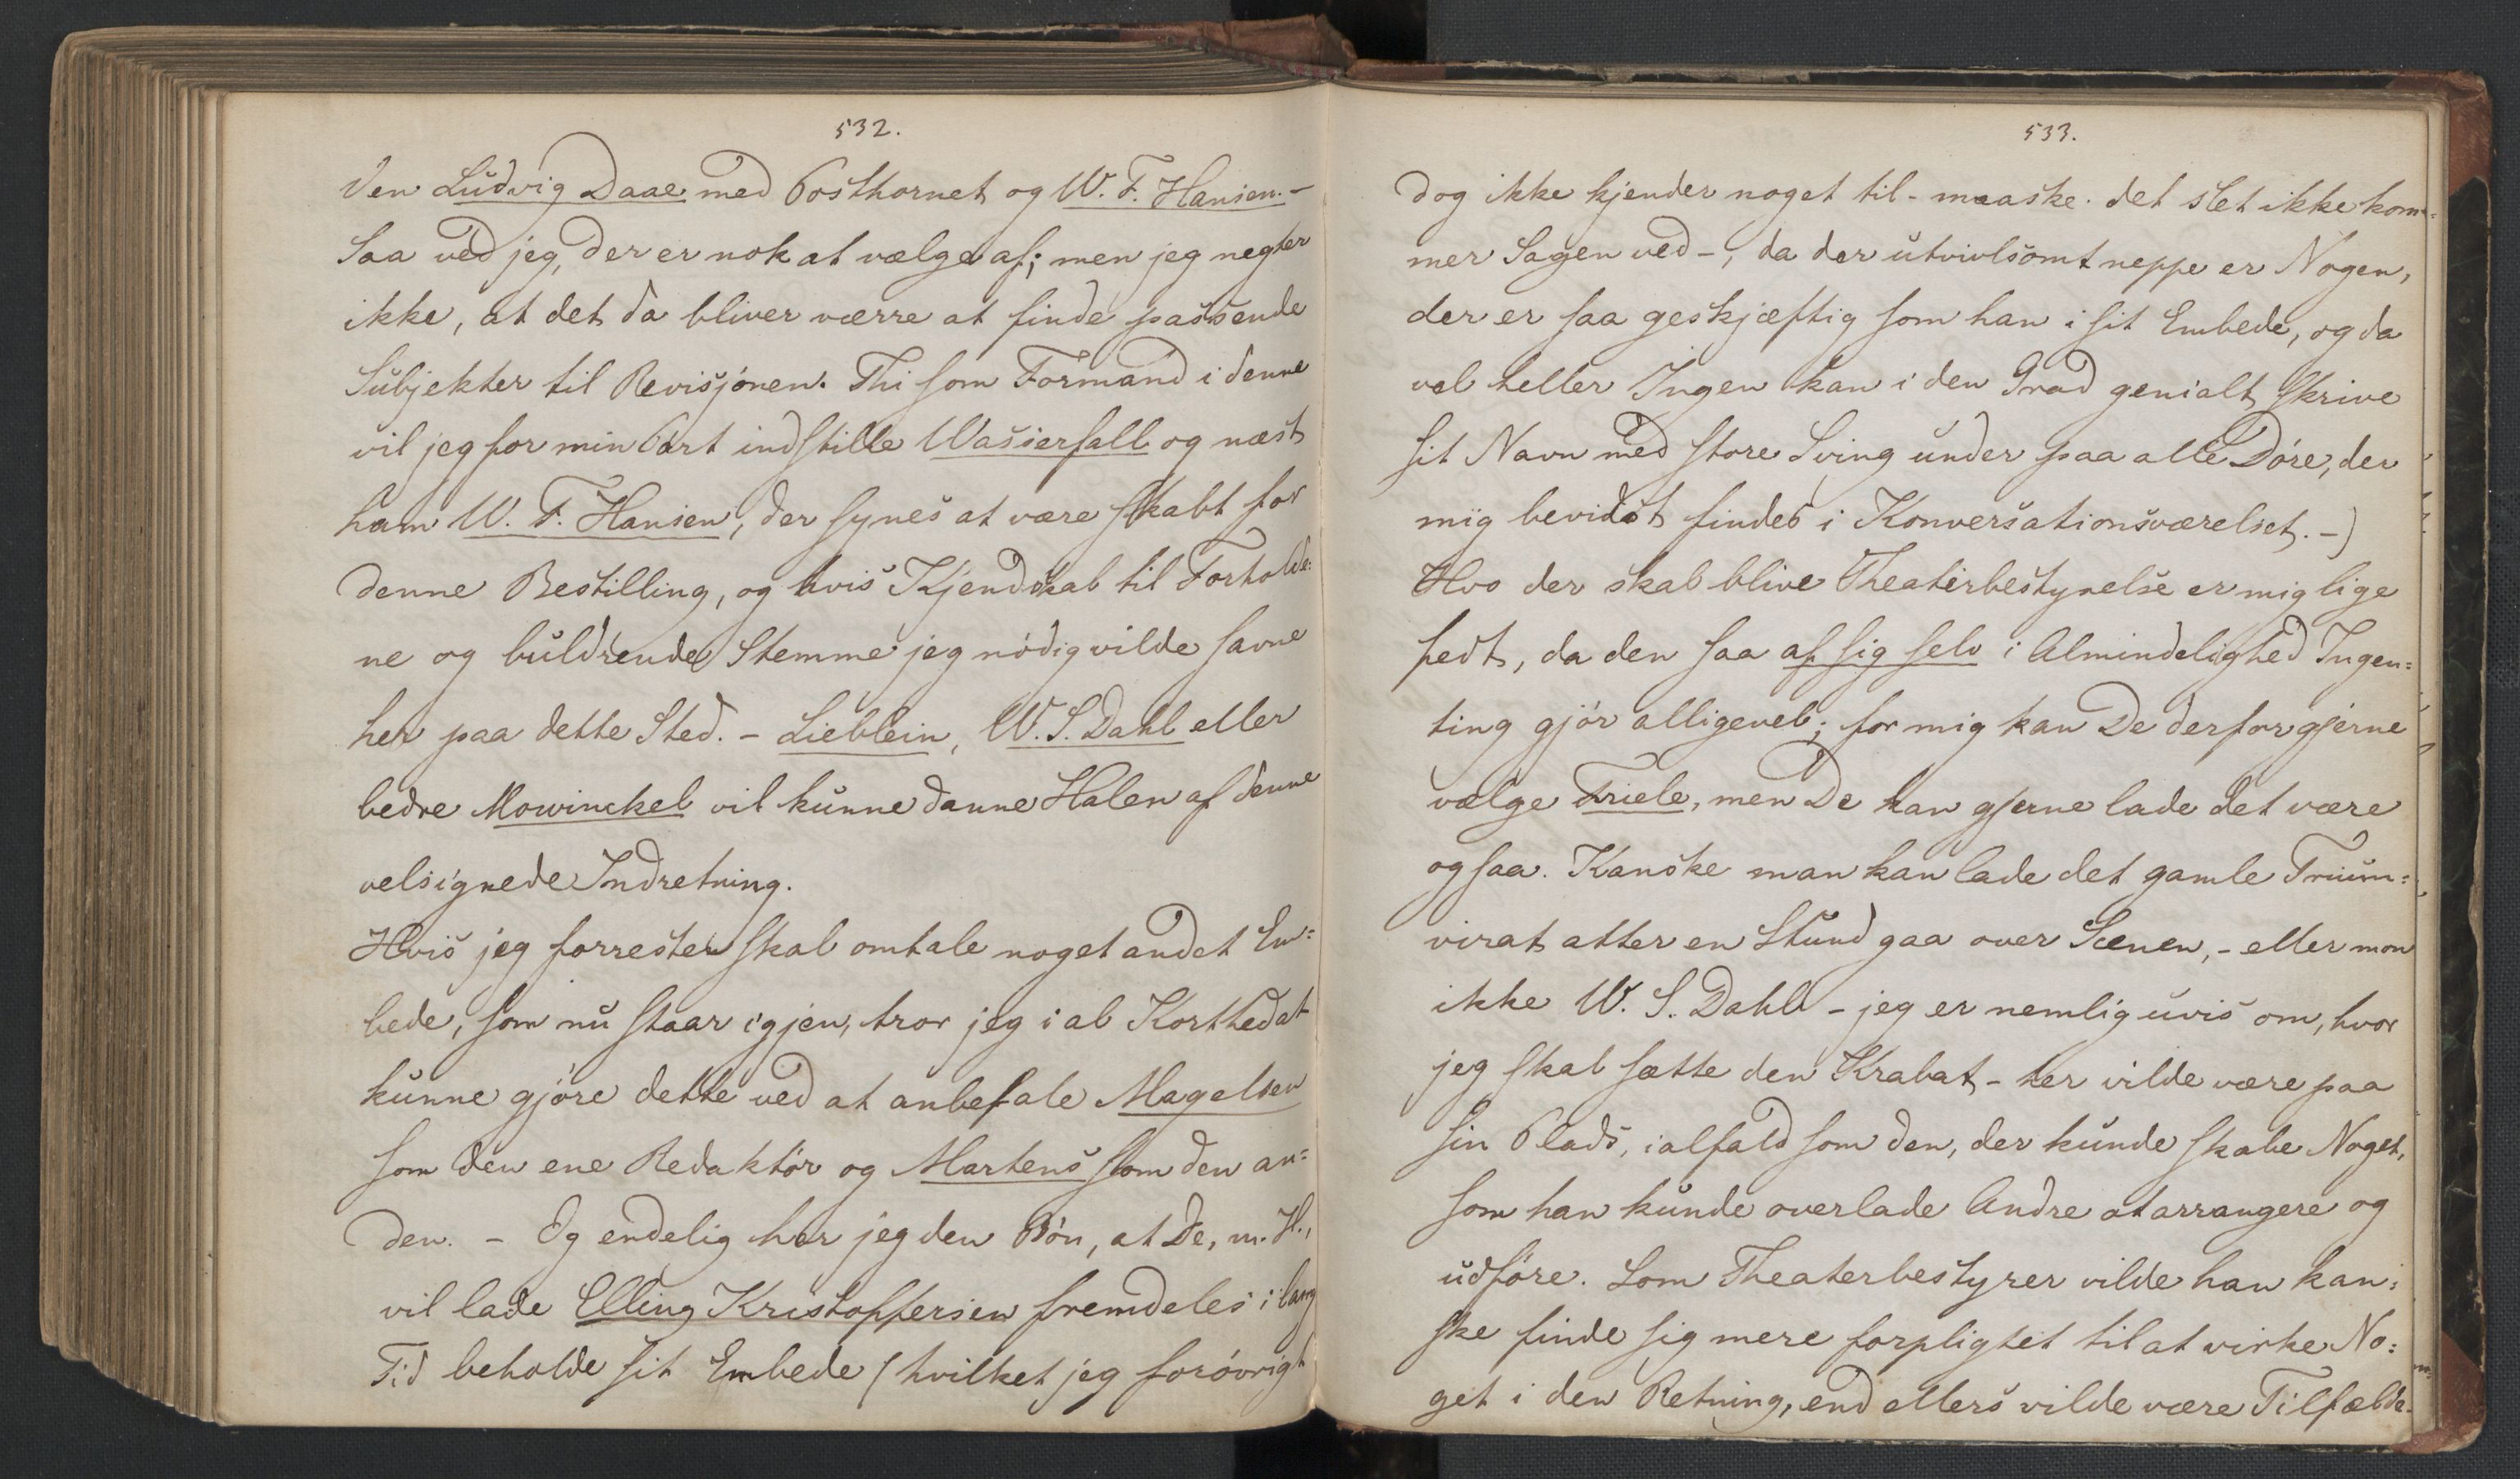 532.
Ven Ludvig Daae med Posthornet og W. F. Hansen. -
Saa ved jeg, der er nok at vælge af; men jeg negter
ikke, at det da bliver værre at finde passende
Subjekter til Revisjonen. Thi som Formand i denne
vil jeg for min Part indstille Wasserfall og næst
ham W. F. Hansen, der synes at være skabt for
denne Bestilling, og hvis Kjendskab til Forholde:
ne og buldrende Stemme jeg nödig vilde savne
her paa dette Sted. - Lieblein, W. S. Dahl eller
bedre Mowinckel vil kunne danne Halen af denne
velsignede Indretning.
Hvis jeg forresten skal omtale noget andet Em=
bede, som nu staar igjen, tror jeg i al Korthed at
kunne gjöre dette ved at anbefale Magelsen
som den ene Redaktör og Martens som den an=
den. - Og endelig har jeg den Bön, at De, m. H.,
vil lade Elling Kristoffersen fremdeles i lang
Tid beholde sit Embede (hvilket jeg forövrigt
533.
dog ikke kjender noget til - maaske det slet ikke kom=
mer Sagen ved -, da der utvivlsomt neppe er Nogen,
der er saa geskjæftig som han i sit Embede, og da
vel heller Ingen kan i den Grad genialt skrive
sit Navn med store Sving under paa alle Döre, der
mig bevidst findes i Konversationsværelset. -)
Hvo der skal blive Theaterbestyrelse er mig lige
fedt, da den saa af sig selv i Almindelighed Ingen=
ting gjör alligevel; for mig kan De derfor gjerne
vælge Friele, men De kan gjerne lade det være
ogsaa. Kanske man kan lade det gamle Trium=
virat atter en Stund gaa over Scenen, - eller mon
ikke W. S. Dahl - jeg er nemlig uvis om, hvor
jeg skal sætte den Krabat - her vilde være paa
sin Plads, ialfald som den, der kunde skabe Noget,
som han kunde overlade Andre at arrangere og
udföre. Som Theaterbestyrer vilde han kan=
ske finde sig mere forpligtet til at virke No=
get i den Retning, end ellers vilde være Tilfælde.